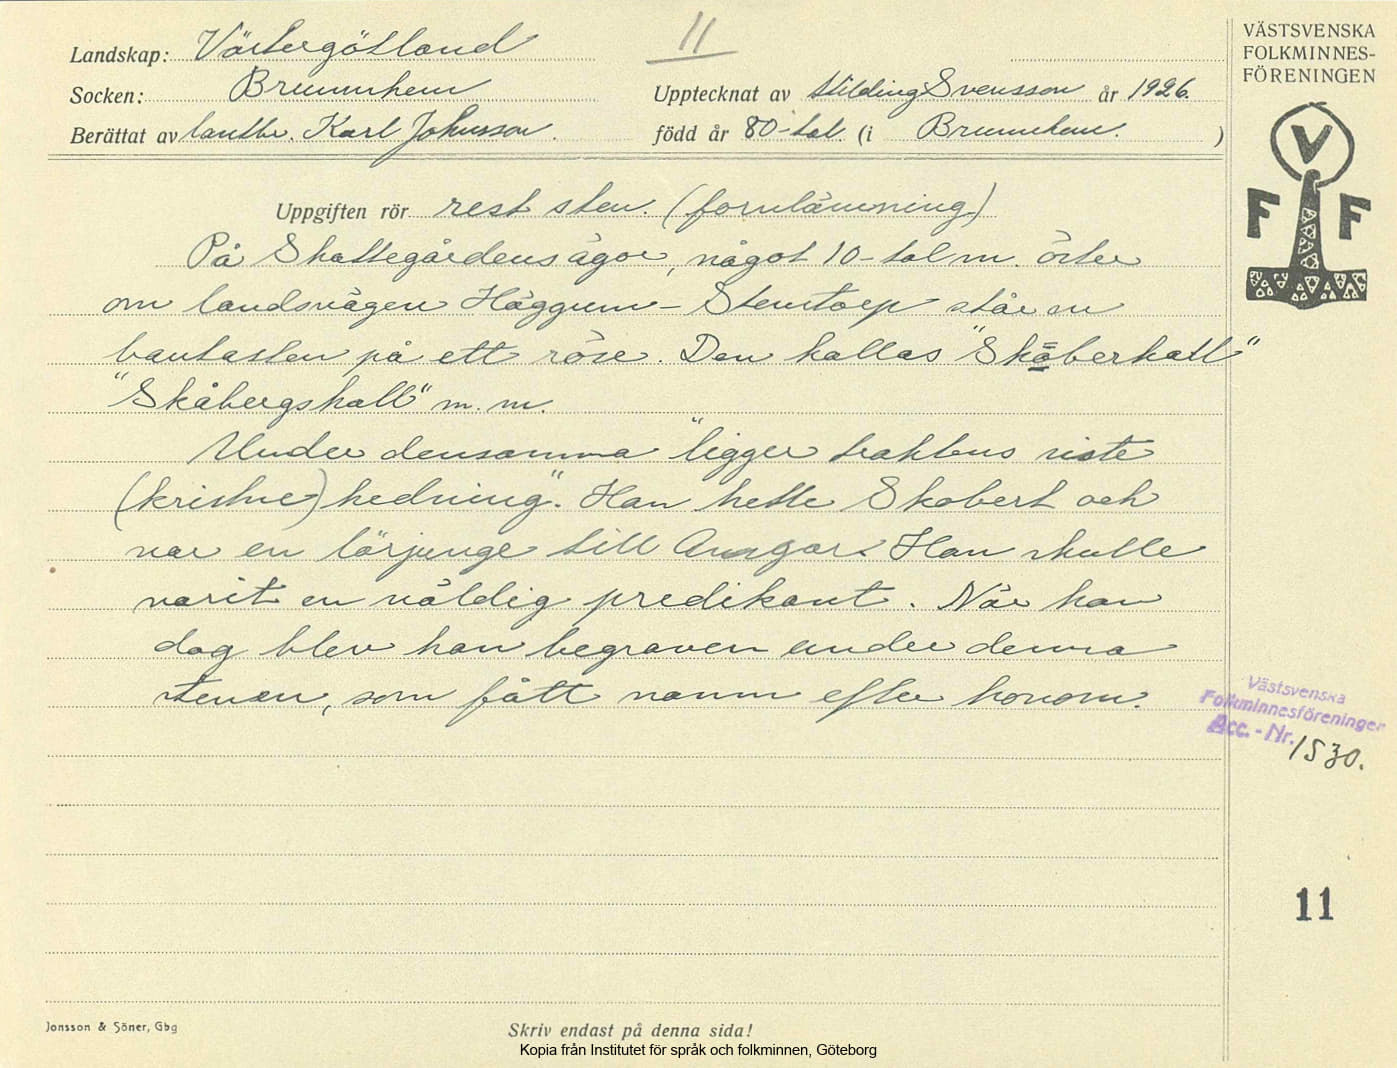 11
VÄSTSVENSKA
FOLKMINNES-
FÖRENINGEN
V
F F
Landskap: Västergötland
Socken: Brunnhem
Upptecknat av Hilding Svensson år 1926.
Berättat av lantbr. Karl Johnsson.
född år 80-tal (i Brunnhem. )
Uppgiften rör rest sten. (fornlämning)
På Skattegårdens ägor, något 10-tal m. öster
om landsvägen Häggum - Stenstorp står en
bautasten på ett röse. Den kallas "Skåberhall"
"Skåbergshall" m. m.
Under densamma "ligger traktens siste
(kristne) hedning". Han hette Skobert och
var en lärjunge till Ansgar. Han skulle
varit en väldig predikant. När han
dog blev han begraven under denna
stenen, som fått namn efter honom.
Västsvenska
Folkminnesföreningen
Acc. - Nr. 1530.
11
Jonsson & Söner, Gbg
Skriv endast på denna sida!
Kopia från Institutet för språk och folkminnen, Göteborg